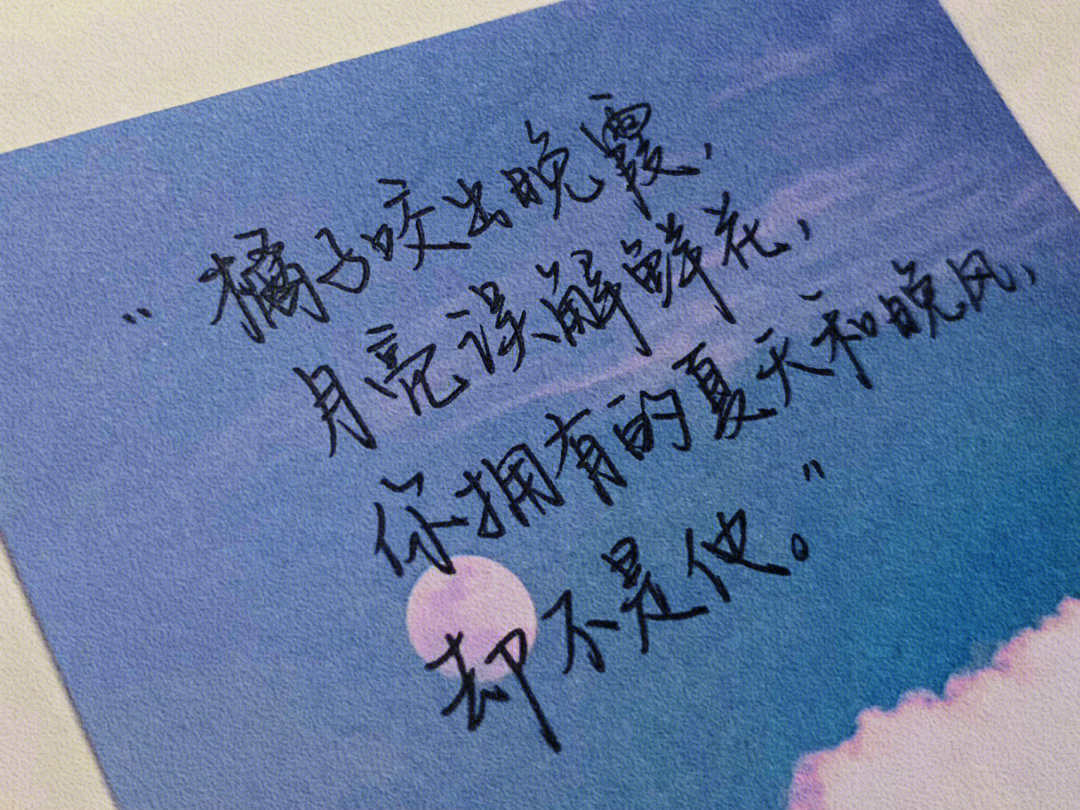 “橘子咬出晚霞,
月亮误解鲜花,
你拥有的夏天和晚风,
却不是他。”